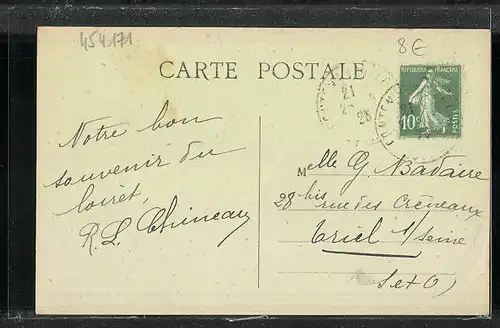 454171
8€
CARTE POSTALE
REPUBLIQUE FRANÇAISE
10c
POSTES
21
25
Notre bon
souvenir du
loiret,
R. L. Thineau
Melle G Badaire
28 bis rue des Créneaux
Triel s/Seine
(S et O)